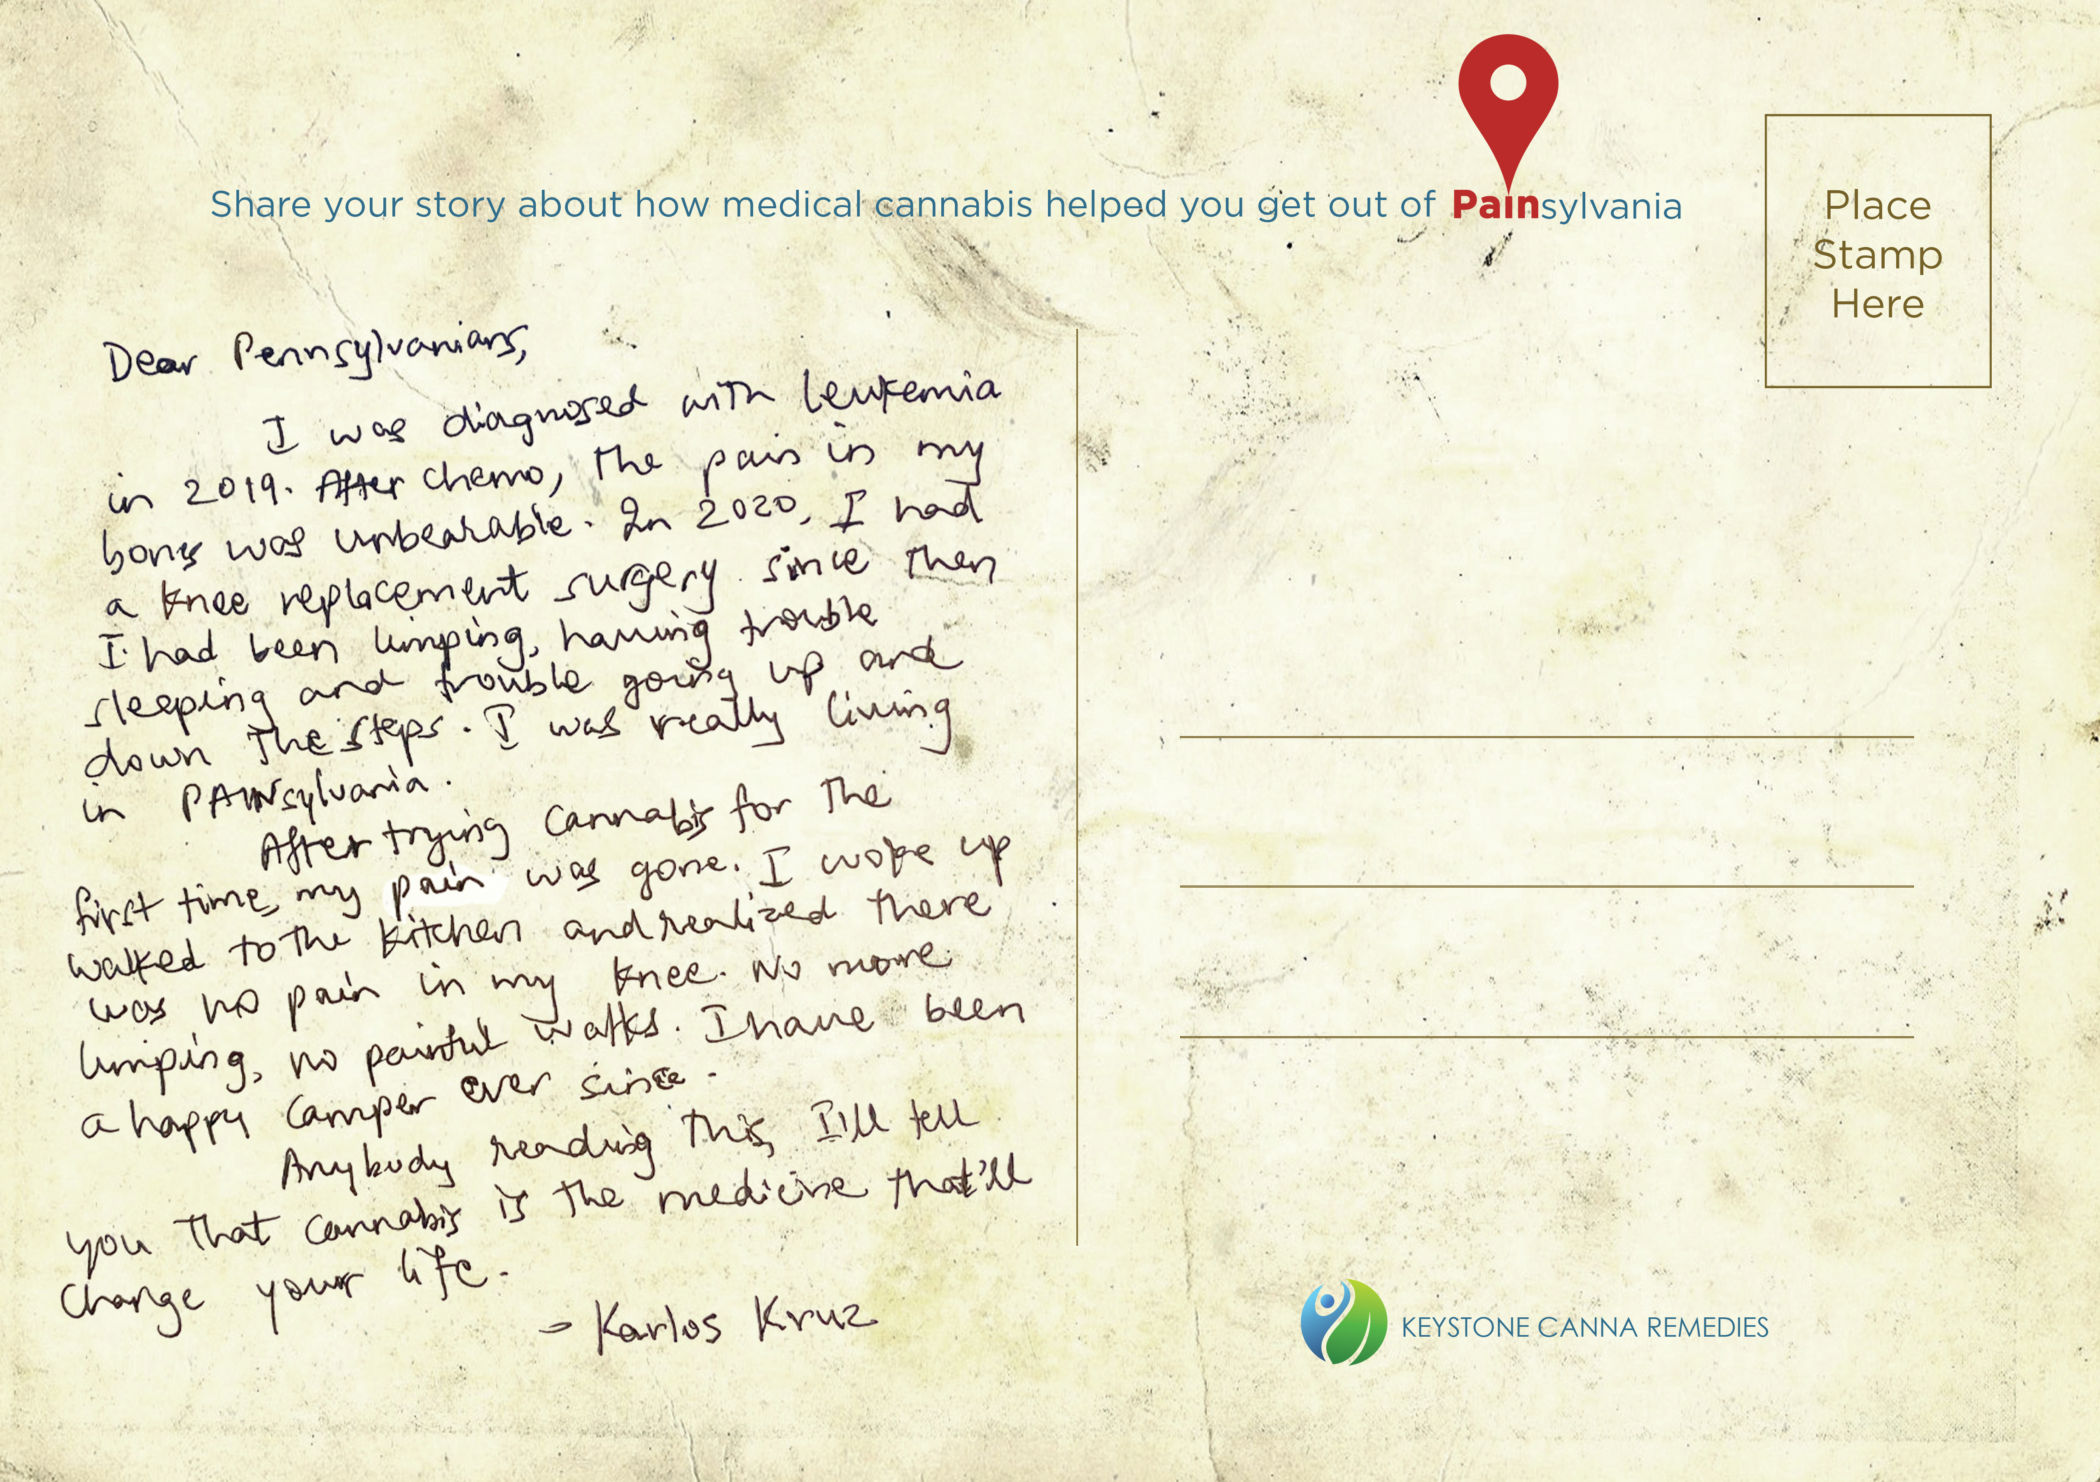 Share your story about how medical cannabis helped you get out of Painsylvania
Place
Stamp
Here
Dear Pennsylvanians,
I was diagnosed with leukemia
in 2019. After chemo, the pain in my
bones was unbearable. In 2020, I had
a knee replacement surgery. since then
I had been limping, having trouble
sleeping and trouble going up and
down the steps. I was really living
in PAINsylvania.
After trying cannabis for the
first time, my pain was gone. I woke up
walked to the kitchen and realized there
was no pain in my knee. No more
limping, no painful walks. I have been
a happy camper ever since.
Anybody reading this, I'll tell
you that cannabis is the medicine that'll
change your life.
- Karlos Kruz
KEYSTONE CANNA REMEDIES